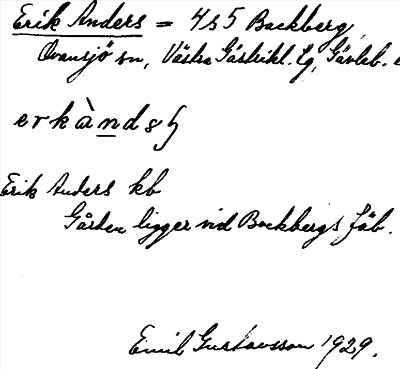 Erik Anders = 4 & 5 Backberg,
Ovansjö sn, Västra Gästrikl. tg, Gävleb.
erkànds
Erik Anders kb
Gården ligger vid Backbergs fäb.
Emil Gustavsson 1929.